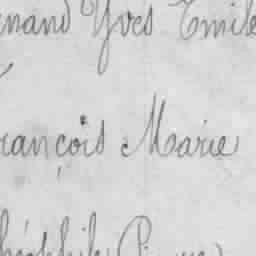 nand Yves Emile
rançois Marie
héophile Pierre